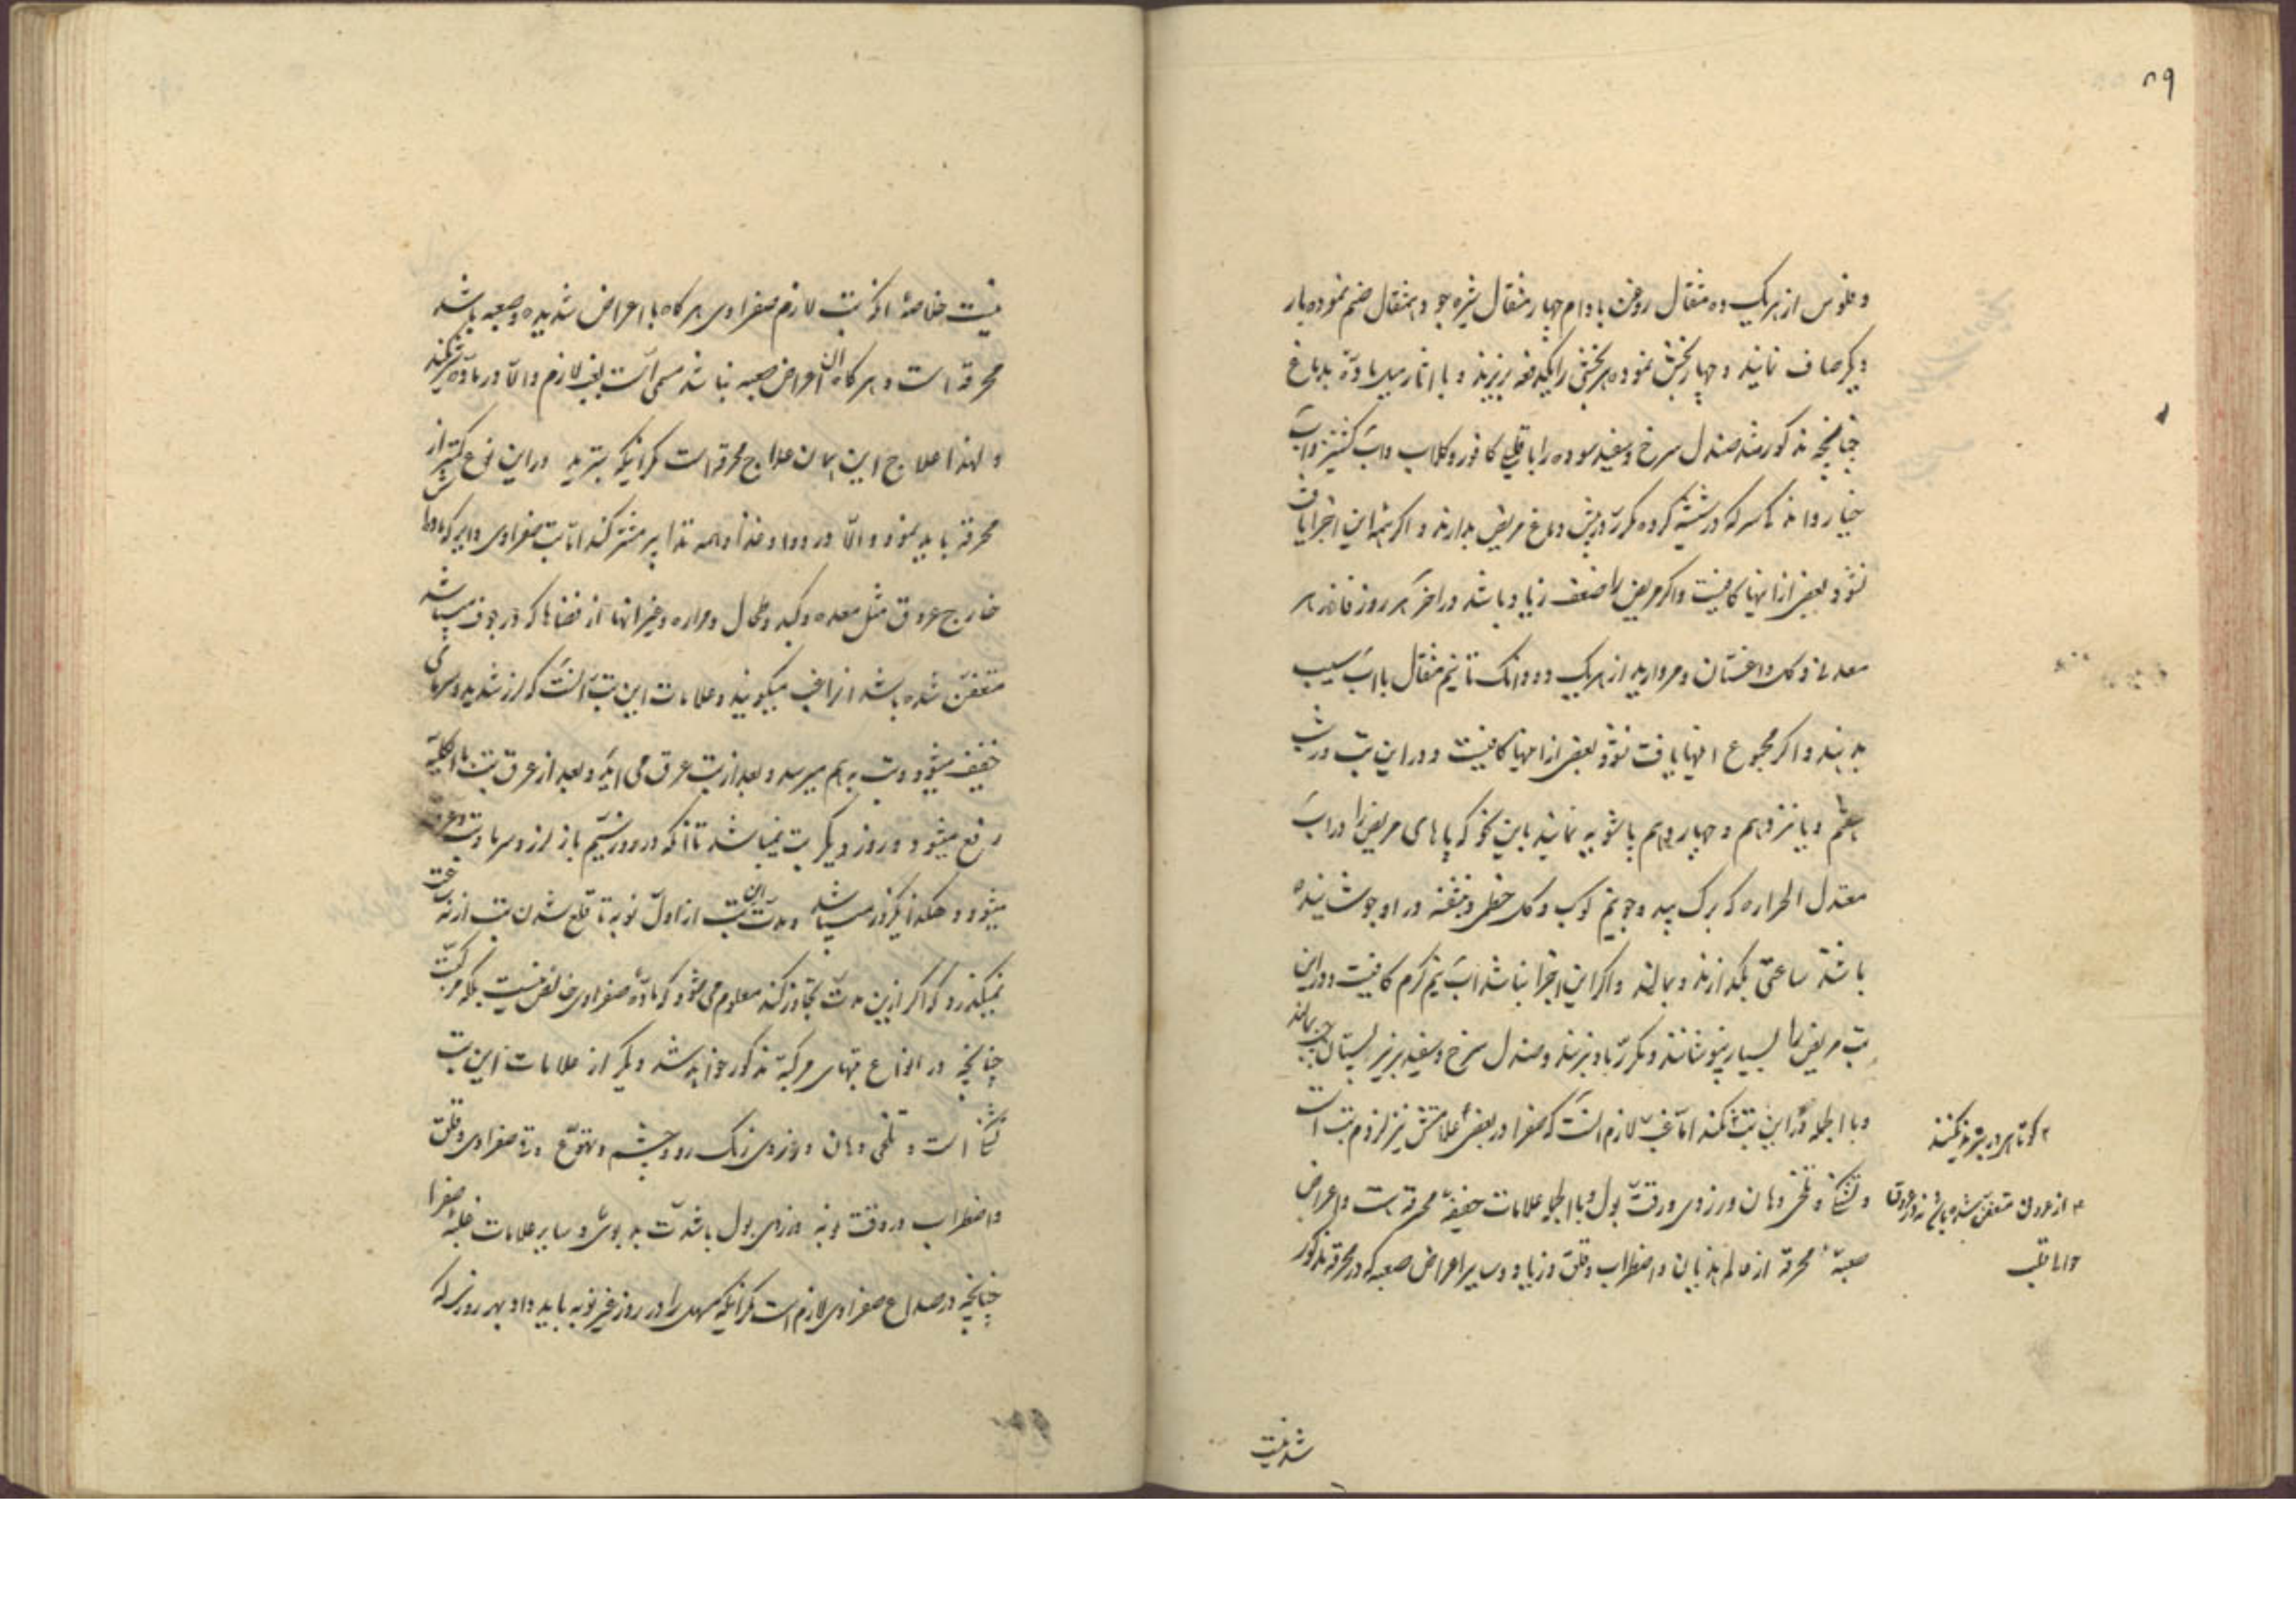 ۵۹
و فلوس از هریک ده مثقال روغن بادام چهار مثقال شیره جو دهمثقال ضم نموده بار
دیکر صاف نمایند و چهار بخش نموده هر بخشی را یکدفعه بریزند و با اثار میل مادّه بدماغ
چنانچه مذکور شد صندل سرخ و سفید سوده را با قلیلی کافور و کلاب و اب کشنیز و اب
خیار و اندک سرکه در شیشه کرده مکرّر پیش دماغ مریض بدارند و اکر همه این اجزا یافت
نشود بعضی از انها کافیست و اکر مریض را ضعف زیاد باشد در اخر هر روز فادزهر
معدنی و کل داغستان و مروارید از هریک دو دانک تا نیم مثقال با اب سیب
بدهند و اکر مجموع اینها یافت نشود بعضی از انها کافیست و در این تب در شب
هفتم و یا نزدهم و چهاردهم پاشویه نمایند باین نحو که پاهای مریض را در اب
معتدل الحراره که برک بید و جو نیم کوب و کل خطمی و بنفشه در او جوشانیده
باشند ساعتی بکذارند و بمالند و اکر این اجزا نباشد اب نیم کرم کافیست و در این
تب مریض را بسیار نپوشانند و مکرّر باد بزنند و صندل سرخ و سفید بزیر پستان چپ بمالند
و بالجمله در این تب ۲ نکنند امّا غبّ لازم انست که صفرا در بعضی ۳ علامتش نیز لزوم تب است
و تشنکی و تلخی دهان و زردی و رقّت بول و بالجمله علامات خفیفه محرقه است و اعراض
صعبه محرقه از عالم هذیان و اضطراب و قلق و زیاد و سایر اعراض صعبه که در محرقه مذکور
۲ کوتاهی در تبرید نکنند
۳ از عروق متعفن شده باشد نه در عروق
حوالی قلب
شد نیست
نیست خلاصهٔ انکه تب لازم صفراوی هرکاه با اعراض شدیده و صعبه باشد
محرقه است و هرکاه ان اعراض صعبه نباشد مسمی است بغب لازم و الّا در مادّه شریکند
و لهذا علاج این همان علاج محرقه است مکر انیکه تبرید در این نوع کمتر از
محرقه باید نمود و الّا در دوا و غذا و همه تدابیر مشترکند امّا تب صفراوی دایر که مادّه‌اش
خارج عروق مثل معده و کبد و طحال و مراره و غیر انها از فضاها که در جوف میباشد
متعفّن شده باشد انرا غب میکویند و علامات این تب انست که لرز شدید و سرمای
خفیف میشود و تب بهم میرسد و بعد از تب عرق می اید و بعد از عرق تب بالکلیّه
رفع میشود و روز دیکر تب نمیباشد تا انکه در روز سیّم باز لرز و سرما و تب و عرق
میشود و هکذا یکروز میباشد و مدّت ان تب از اول نوبه تا قلع شدن تب از نه ساعت
نمیکذرد که اکر ازین مدّت تجاوز کند معلوم می شود که مادّهٔ صفراوی خالص نیست بلکه مرکّبست
چنانچه در انواع تبهای مرکّبه مذکور خواهد شد و دیکر از علامات این تب
تشنکی است و تلخی دهان و زردی رنک رو و چشم و تهوّع و قی صفراوی و قلق
و اضطراب در وقت نوبه و زردی بول با شدّت بدبوی و سایر علامات غلبهٔ صفرا
چنانچه در صداع صفراوی لازم است مکر انیکه مسهل را در روز غیر نوبه باید داد بهر روزی که